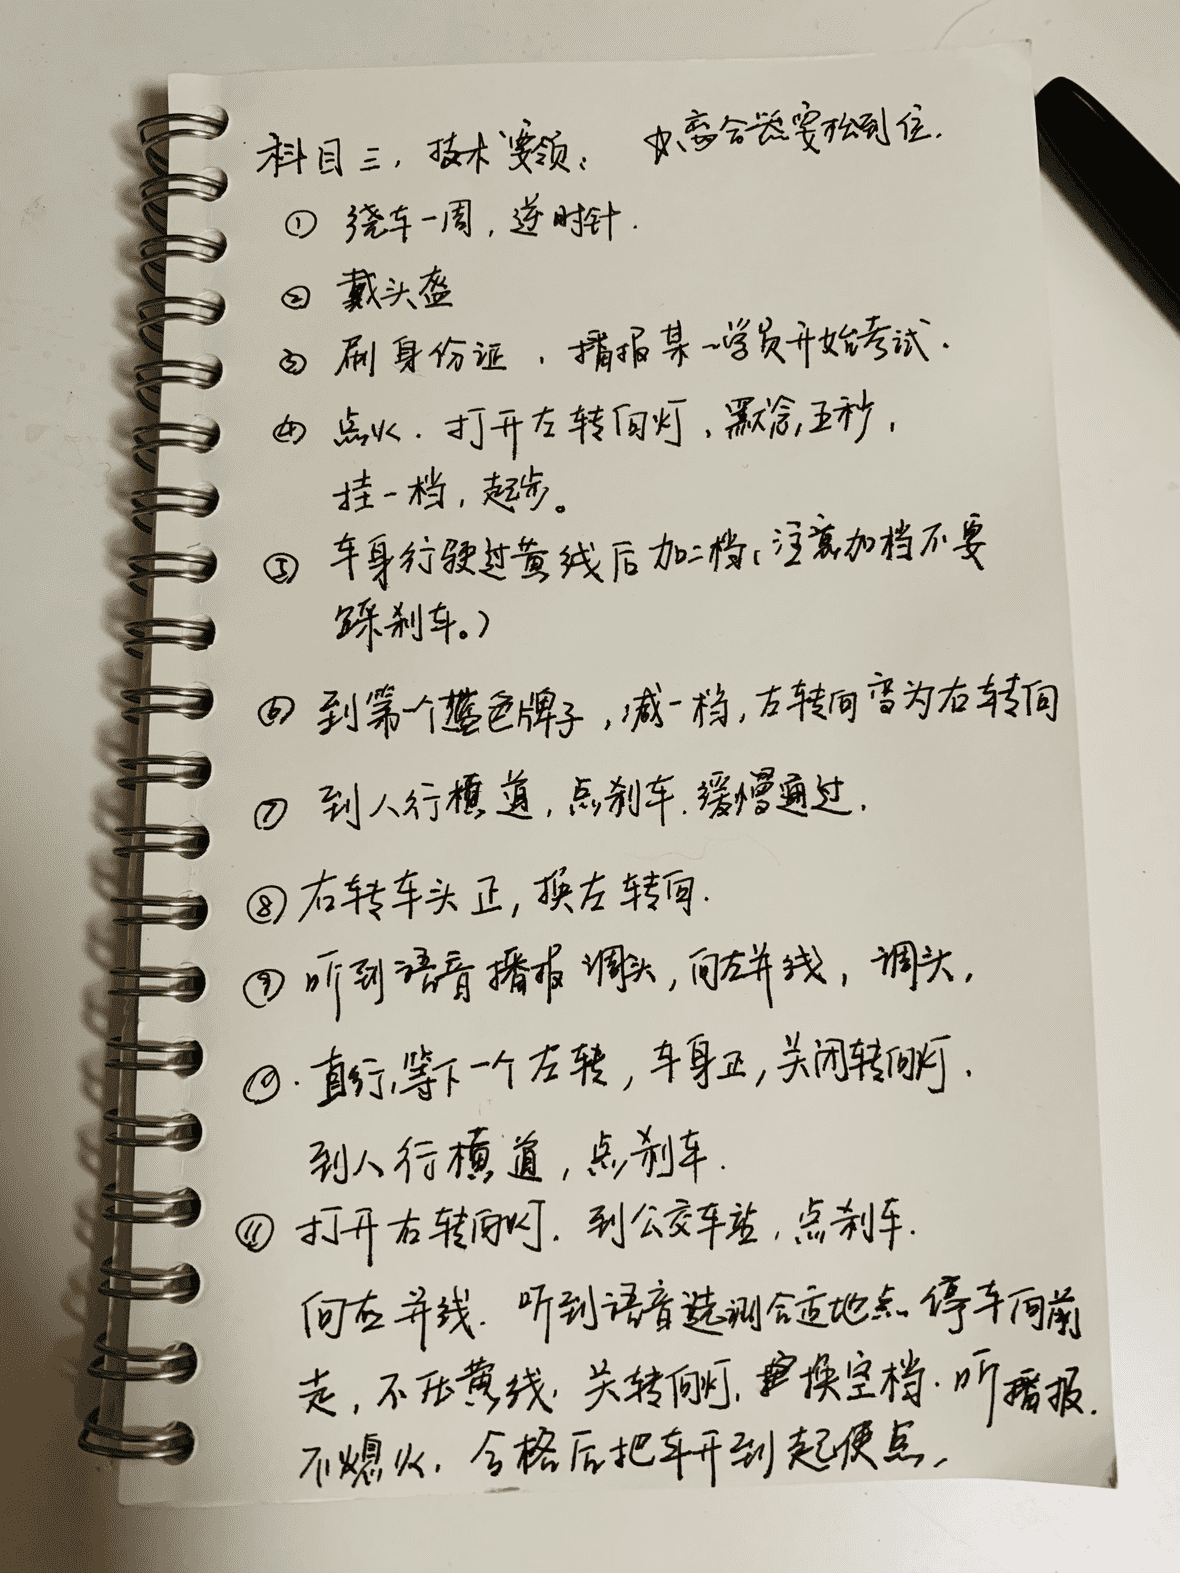 科目三,技术要领: ☆离合器要松到位.
① 绕车一周,逆时针.
② 戴头盔
③ 刷身份证,播报某一学员开始考试.
④ 点火.打开左转向灯,默念五秒,
挂一档,起步。
⑤ 车身行驶过黄线后加二档,注意加档不要
踩刹车。)
⑥ 到第一个蓝色牌子,减一档,左转向变为右转向
⑦ 到人行横道,点刹车.缓慢通过.
⑧ 右转车头正,换左转向.
⑨ 听到语音播报调头,向左并线,调头.
⑩.直行,等下一个左转,车身正,关闭转向灯.
到人行横道,点刹车.
⑪ 打开右转向灯.到公交车站,点刹车.
向右并线.听到语音选测合适地点停车向前
走,不压黄线.关转向灯,换空档.听播报.
不熄火.合格后把车开到起使点,